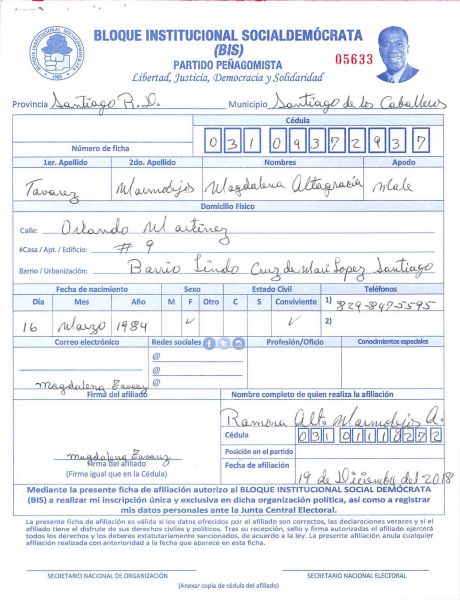 BLOQUE INSTITUCIONAL SOCIALDEMÓCRATA
(BIS)
PARTIDO PEÑAGOMISTA
Libertad, Justicia, Democracia y Solidaridad
05633
Provincia Santiago R.D. Municipio Santiago de los Caballeros
Cédula
Número de ficha 031 0937293 7
1er. Apellido 2do. Apellido Nombres Apodo
Tavarez Marmolejos Magdalena Altagracia Male
Domicilio Físico
Calle: Orlando Martinez
#Casa / Apt. / Edificio: # 9
Barrio / Urbanización: Barrio Lindo Cruz de Mari Lopez Santiago
Fecha de nacimiento Sexo Estado Civil Teléfonos
Día Mes Año M F Otro C S Conviviente 1) 829-847-5595
16 Marzo 1984 ✓ ✓ 2)
Correo electrónico Redes sociales Profesión/Oficio Conocimientos especiales
@
@
@
Magdalena Tavarez
Firma del afiliado Nombre completo de quien realiza la afiliación
Ramona Alt. Marmolejos A.
Cédula 031 0111827 2
Posición en el partido
Magdalena Tavarez
Firma del afiliado
(Firme igual que en la Cédula)
Fecha de afiliación 19 de Diciembre del 2018
Mediante la presente ficha de afiliación autorizo al BLOQUE INSTITUCIONAL SOCIAL DEMÓCRATA
(BIS) a realizar mi inscripción única y exclusiva en dicha organización política, así como a registrar
mis datos personales ante la Junta Central Electoral.
La presente ficha de afiliación es válida si los datos ofrecidos por el afiliado son correctos, las declaraciones veraces y si el
afiliado tiene el disfrute de sus derechos civiles y políticos. Tras su recepción, sello y firma autorizadas el afiliado ejercerá
todos los derechos y los deberes estatutariamente sancionados, de acuerdo a la ley. La presente afiliación anula cualquier
afiliación realizada con anterioridad a la fecha que aparece en esta ficha.
SECRETARIO NACIONAL DE ORGANIZACIÓN SECRETARIO NACIONAL ELECTORAL
(Anexar copia de cédula del afiliado)